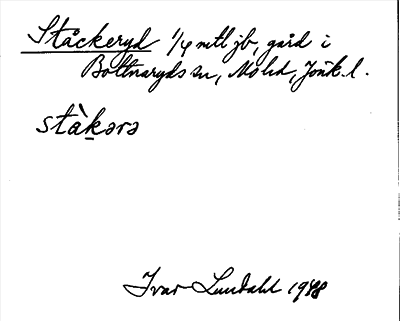 Ståckeryd 1/4 mtl jb, gård i
Bottnaryds sn, Mo hd, Jönk. l.
stàk̠ərə
Ivar Lundahl 1948